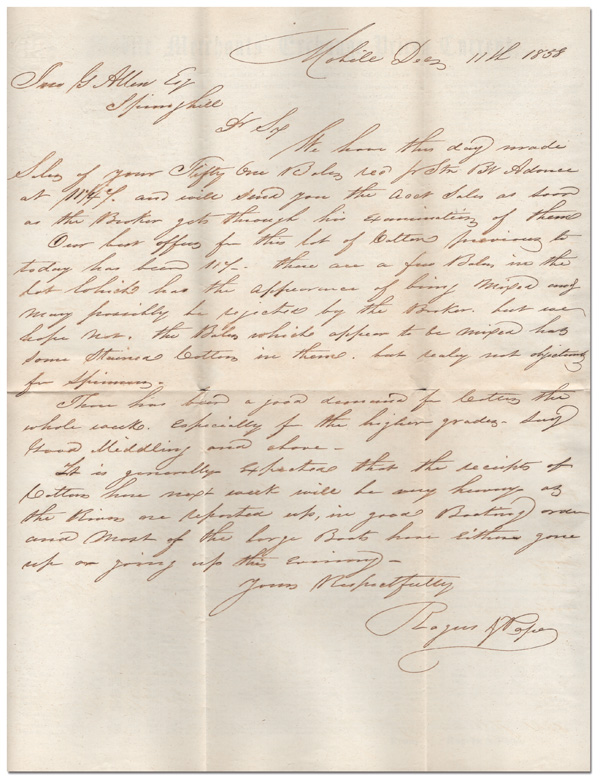 Mobile Decr 11th 1858
Jno G Allen Esq
Springhill
Dr Sir
We have this day made
Sales of your Fifty One Bales recd pr Str Bt Advance
at 11¼c/. and will send you the acct Sales as soon
as the Broker gets through his examination of them
Our best offer for this lot of Cotton previous to
today has been 11c/- there are a few Bales in the
Lot which has the appearance of being Mixed and
may possibly be rejected by the Broker. but we
hope not, the Bales which appear to be mixed has
some Stained Cotton in them. but realy not
for Spinners.-
There has been a good demand for Cotton the
whole week. Especially for the higher grades- Say
Good Middling and above-
It is generally Expected that the receipts of
Cotton here next week will be very heavy as
the Rivers are reported up, in good Boating order
and Most of the large Boats have Either gone
up or going up this Evening-
Yours Respectfully
& Pope